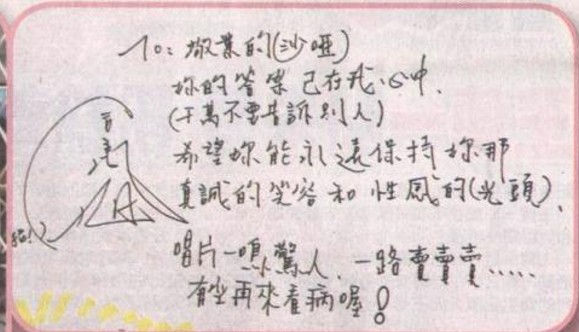 To: 敬業的(沙啞)
妳的答案已在我心中.
(千萬不要告訴別人)
希望妳能永遠保持妳那
真誠的笑容和性感的(光頭).
唱片一鳴驚人、一路賣賣賣.....
有空再來看病喔!